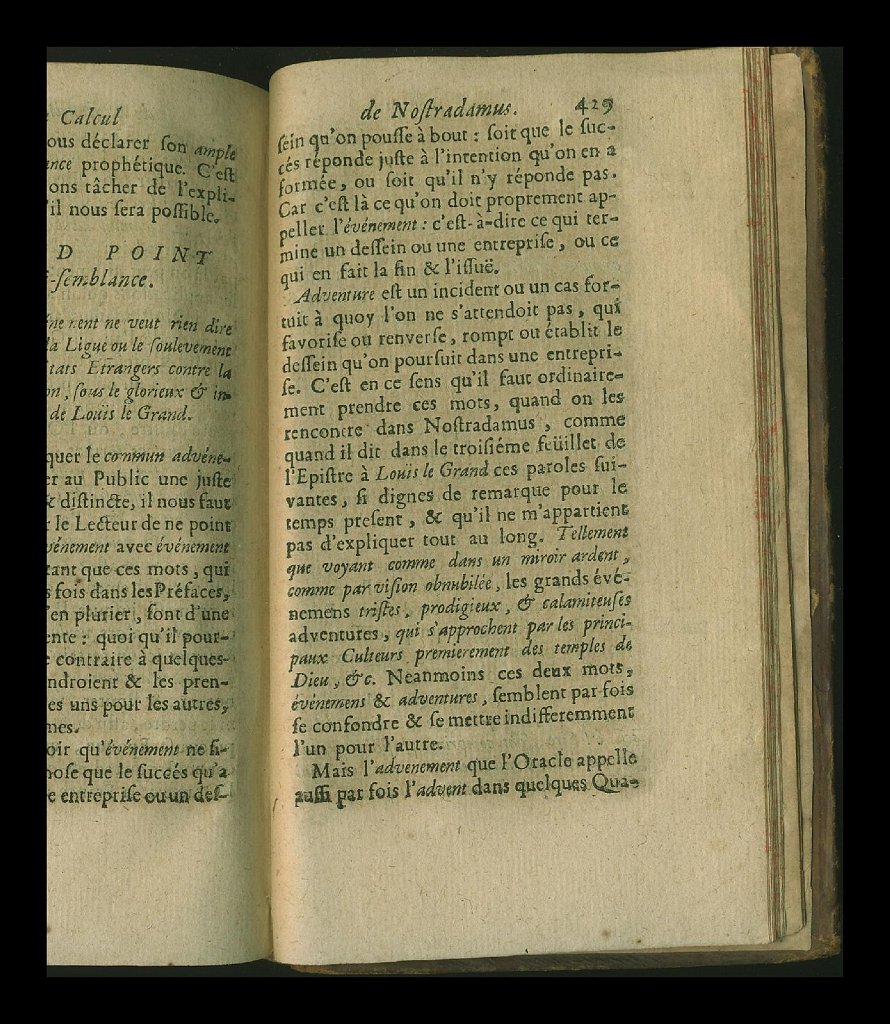 Calcul
ous déclarer ſon ample
ance prophétique. C'eſt
ons tâcher de l'expli-
'il nous ſera poſſible.
D POINT
i-ſemblance.
ne veut rien dire
la Ligue ou le ſoulevement
tats Etrangers contre la
on, ſous le glorieux & in-
de Louïs le Grand.
quer le commun advéne-
er au Public une juſte
& diſtincte, il nous faut
r le Lecteur de ne point
vénement avec événement
tant que ces mots, qui
s fois dans les Préfaces,
'en plurier, ſont d'une
ente : quoi qu'il pour-
e contraire à quelques-
ndroient & les pren-
es uns pour les autres,
mes.
oir qu'événement ne ſi-
hoſe que le ſuccés qu'a
e entrepriſe ou un deſ-
de Noſtradamus. 429
ſein qu'on pouſſe à bout : ſoit que le ſuc-
cés réponde juſte à l'intention qu'on en a
formée, ou ſoit qu'il n'y réponde pas.
Car c'eſt là ce qu'on doit proprement ap-
peller l'événement : c'eſt-à-dire ce qui ter-
mine un deſſein ou une entrepriſe, ou ce
qui en fait la fin & l'iſſuë.
Adventure eſt un incident ou un cas for-
tuit à quoy l'on ne s'attendoit pas, qui
favoriſe ou renverſe, rompt ou établit le
deſſein qu'on pourſuit dans une entrepri-
ſe. C'eſt en ce ſens qu'il faut ordinaire-
ment prendre ces mots, quand on les
rencontre dans Noſtradamus, comme
quand il dit dans le troiſiéme feüillet de
l'Epiſtre à Louïs le Grand ces paroles ſui-
vantes, ſi dignes de remarque pour le
temps preſent, & qu'il ne m'appartient
pas d'expliquer tout au long. Tellement
que voyant comme dans un miroir ardent,
comme par viſion obnubilée, les grands évé-
nemens triſtes, prodigieux, & calamiteuſes
adventures, qui s'approchent par les princi-
paux Culteurs premierement des temples de
Dieu, &c. Neanmoins ces deux mots,
événemens & adventures, ſemblent par fois
ſe confondre & ſe mettre indifferemment
l'un pour l'autre.
Mais l'advenement que l'Oracle appelle
auſſi par fois l'advent dans quelques Qua-